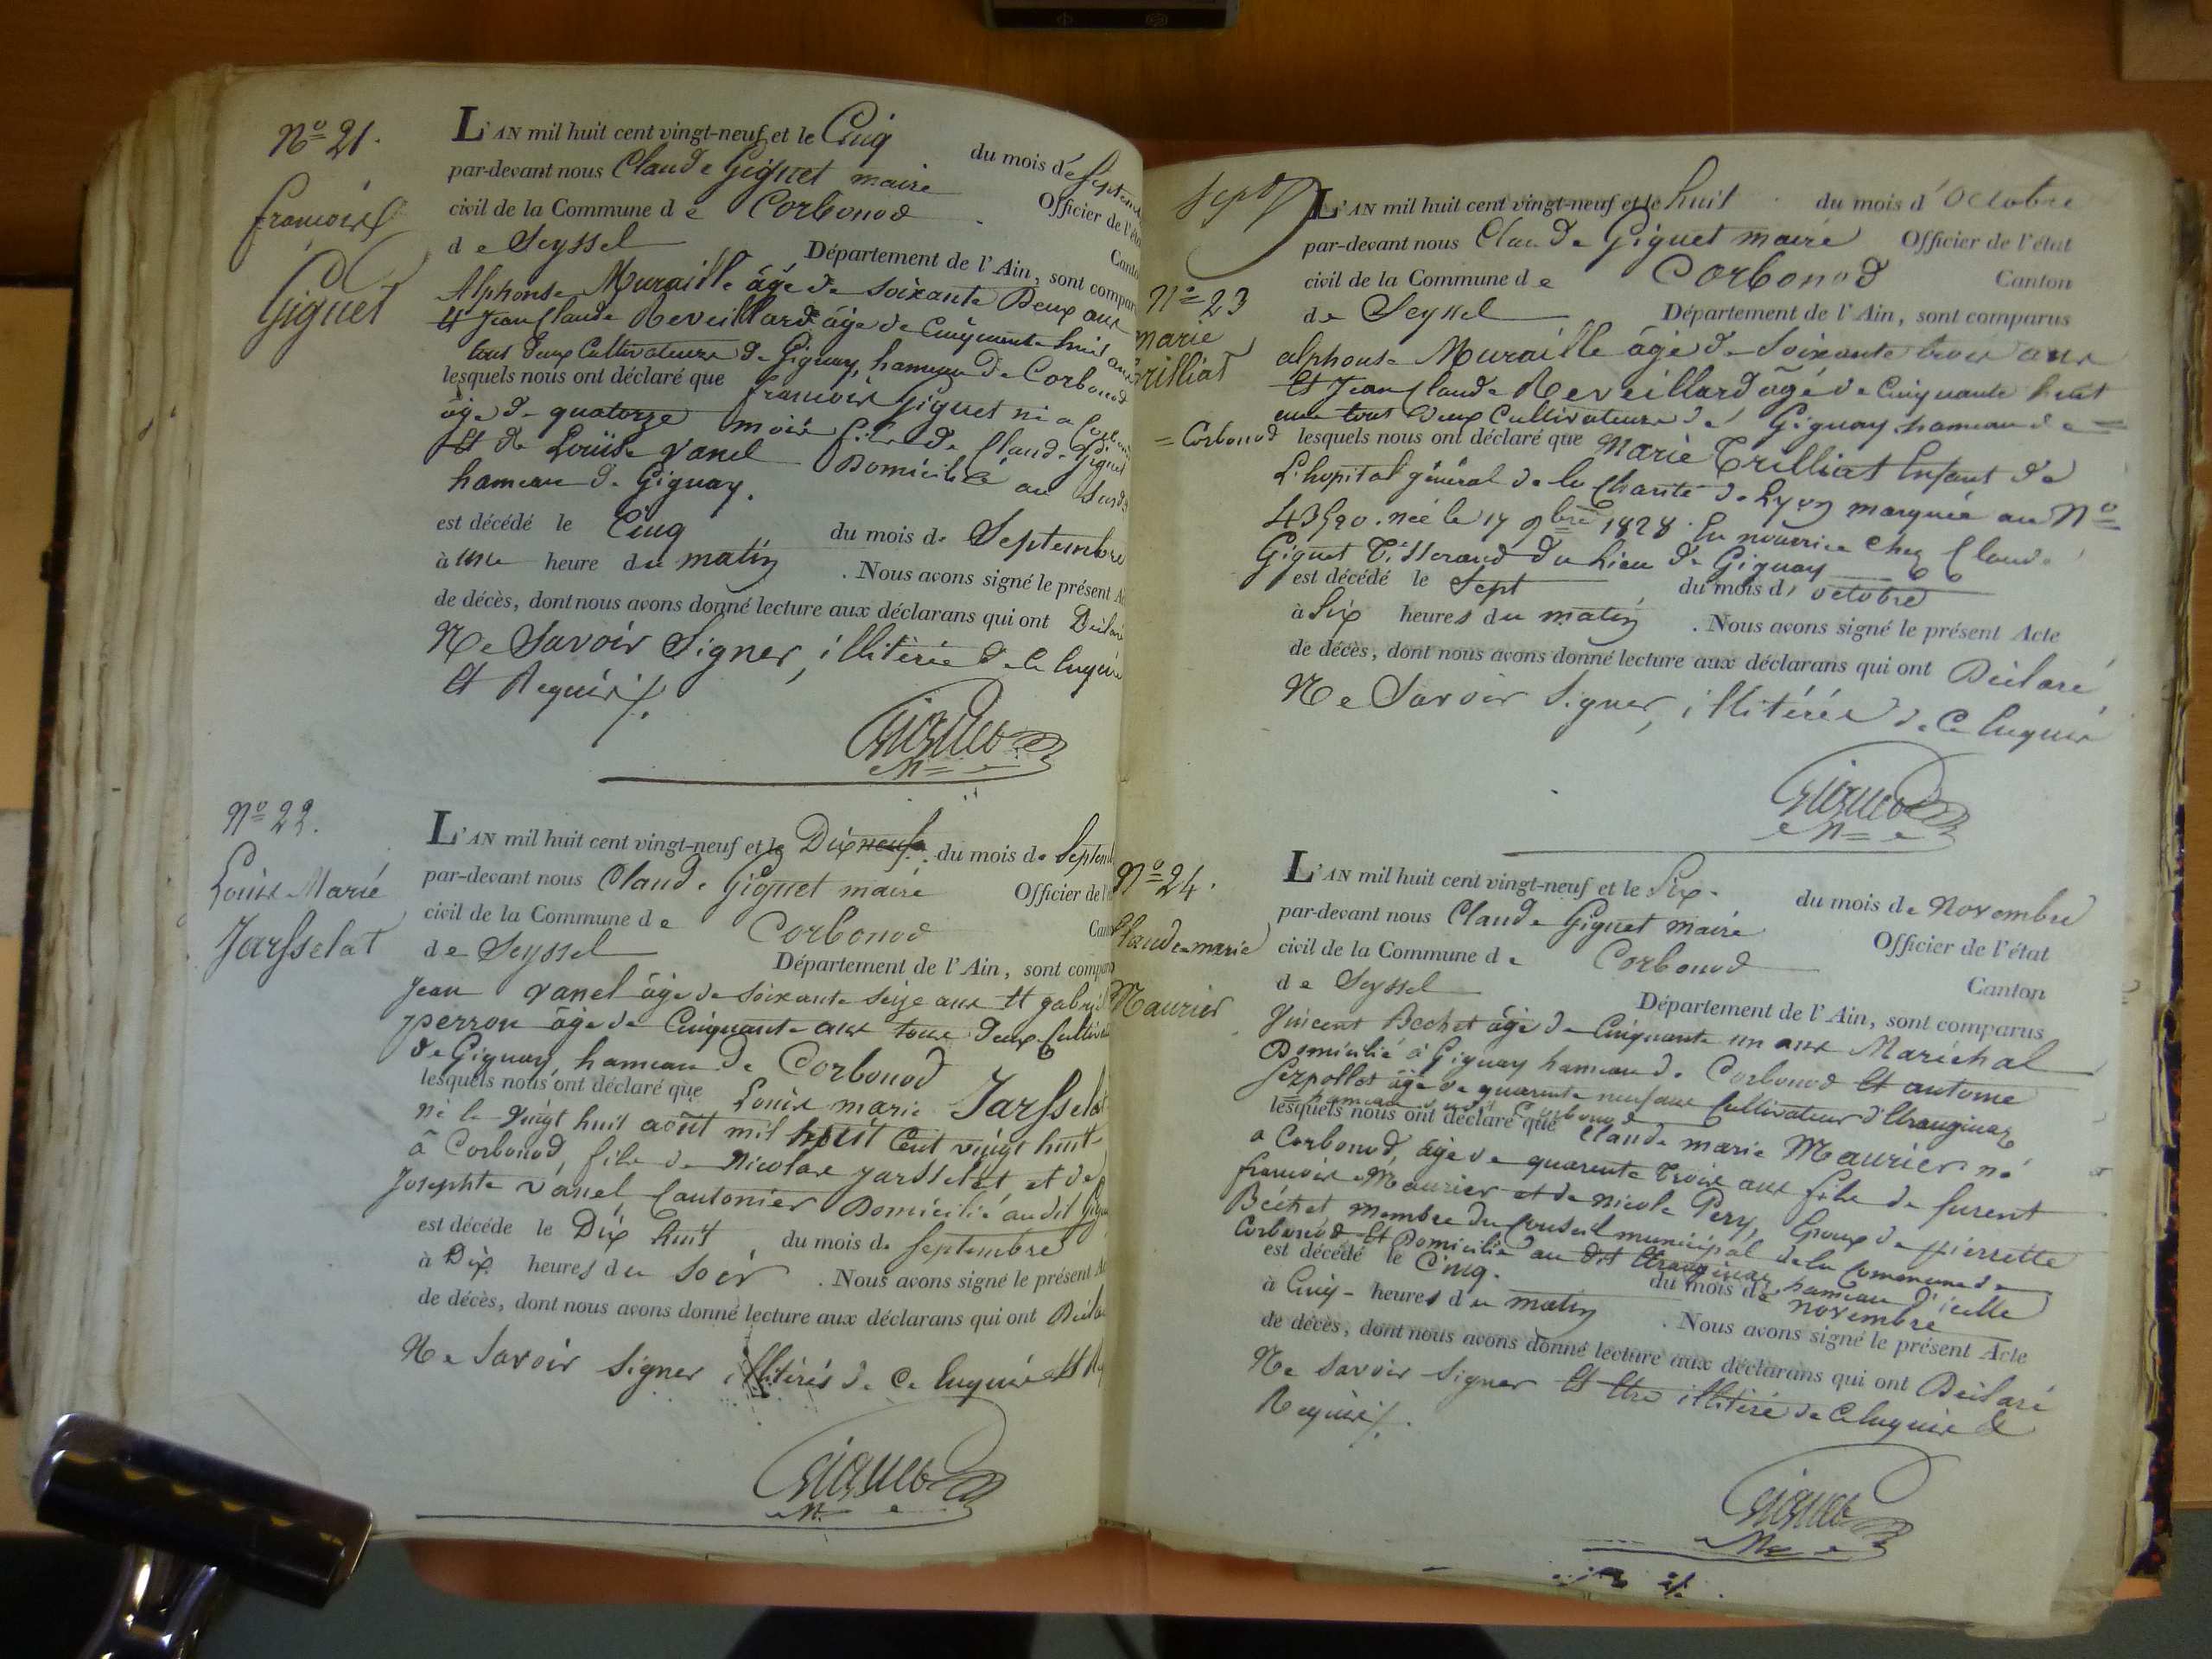 Nº 21.
françois
Giguet
L'AN mil huit cent vingt-neuf et le Cinq du mois de Septem
par-devant nous Claude Giguet maire Officier de l'éta
civil de la Commune de Corbonod Canto
de Seyssel Département de l'Ain, sont compar
Alphonse Muraille âgé de soixante Deux ans
Et Jean Claude Reveillard âgé de Cinquante huit ans
tous deux Cultivateurs de Gignay, hameau de Corbonod
lesquels nous ont déclaré que françois Giguet né a Corbonod
âgé de quatorze mois fils de Claude Giguet
Et de Louise Vanel Domicilié au susdit
hameau de Gignay.
est décédé le Cinq du mois de Septembre
à une heure du matin . Nous avons signé le présent A
de décès, dont nous avons donné lecture aux déclarans qui ont Déclaré
Ne Savoir Signer, illitérés de ce Enquis
Et Requis /.
Giguet
Nº 22.
Louis Marie
Jarsselat
L'AN mil huit cent vingt-neuf et le Dix neuf du mois de Septem
par-devant nous Claude Giguet maire Officier de l'é
civil de la Commune de Corbonod Cant
de Seyssel Département de l'Ain, sont compar
Jean Vanel âgé de soixante seize ans Et gabriel
perron âgé de Cinquante ans tous deux Cultiv
de Gignay, hameau de Corbonod
lesquels nous ont déclaré que Louis marie Jarsselat
né le vingt huit août mil huit Cent vingt huit
à Corbonod, fils de Nicolas Jarsselat et de
Josephte Vanel, Cantonier Domicilié au dit Gigna
est décédé le Dix huit du mois de septembre
à Dix heures du soir . Nous avons signé le présent Ac
de décès, dont nous avons donné lecture aux déclarans qui ont Décla
Ne Savoir Signer illitérés de Ce Enquis et Re
Giguet
Sept
Nº 23
marie
Trilliat
L'AN mil huit cent vingt-neuf et le huit du mois d'Octobre
par-devant nous Claude Giguet maire Officier de l'état
civil de la Commune de Corbonod Canton
de Seyssel Département de l'Ain, sont comparus
alphonse Muraille âgé de Soixante trois ans
Et Jean Claude Reveillard âgé de Cinquante huit
ans tous deux Cultivateurs de Gignay hameau de =
= Corbonod lesquels nous ont déclaré que Marie Trilliat Enfant de
L'hopital général de la Charité de Lyon marquée au Nº
43520. née le 17 9bre 1828. En nourrice chez Claude
Giguet Tisserand du Lieu de Gignay
est décédé le Sept du mois d'octobre
à Six heures du matin . Nous avons signé le présent Acte
de décès, dont nous avons donné lecture aux déclarans qui ont Déclaré
Ne Savoir Signer, illitérés de Ce Enquis
Giguet
Nº 24.
Claude marie
Maurier
L'AN mil huit cent vingt-neuf et le Six. du mois de Novembre
par-devant nous Claude Giguet maire Officier de l'état
civil de la Commune de Corbonod Canton
de Seyssel Département de l'Ain, sont comparus
Vincent Bechet âgé de Cinquante un ans Maréchal
Domicilié à Gignay hameau de Corbonod Et antoine
Serpollet âgé de quarante neuf ans Cultivateur d'Etranginaz
= hameau dudit Corbonod
lesquels nous ont déclaré que Claude marie Maurier né
a Corbonod, âgé de quarante Trois ans fils de furent
françois Maurier et de Nicole Pery, Epoux de pierrette
Béchet membre du Conseil municipal de la Commune de
Corbonod Et Domicilié au dit Etranginaz hameau d'icelle
est décédé le Cinq. du mois de novembre
à Cinq - heures du matin . Nous avons signé le présent Acte
de décès, dont nous avons donné lecture aux déclarans qui ont Déclaré
Ne Savoir Signer Et Etre illitéré de Ce Enquis &
Requis /.
Giguet